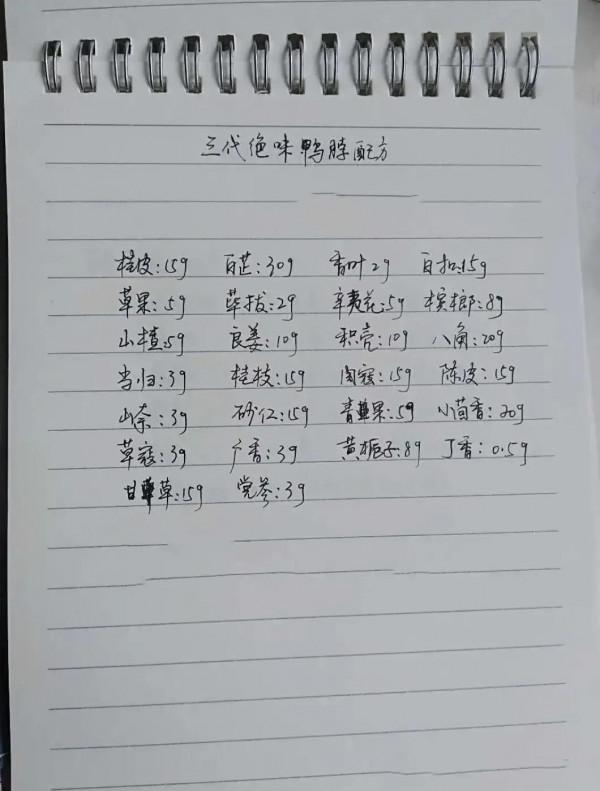 三代绝味鸭脖配方
桂皮:15g 白芷:30g 香叶2g 白扣:15g
草果:5g 荜拔:2g 辛夷花:5g 槟榔:8g
山楂:5g 良姜:10g 积壳:10g 八角:20g
当归:3g 桂枝:15g 肉寇:15g 陈皮:15g
山奈:3g 砂仁:15g 青果:5g 小茴香:20g
草寇:3g 个香:3g 黄栀子:8g 丁香:0.5g
甘草:15g 党参:3g